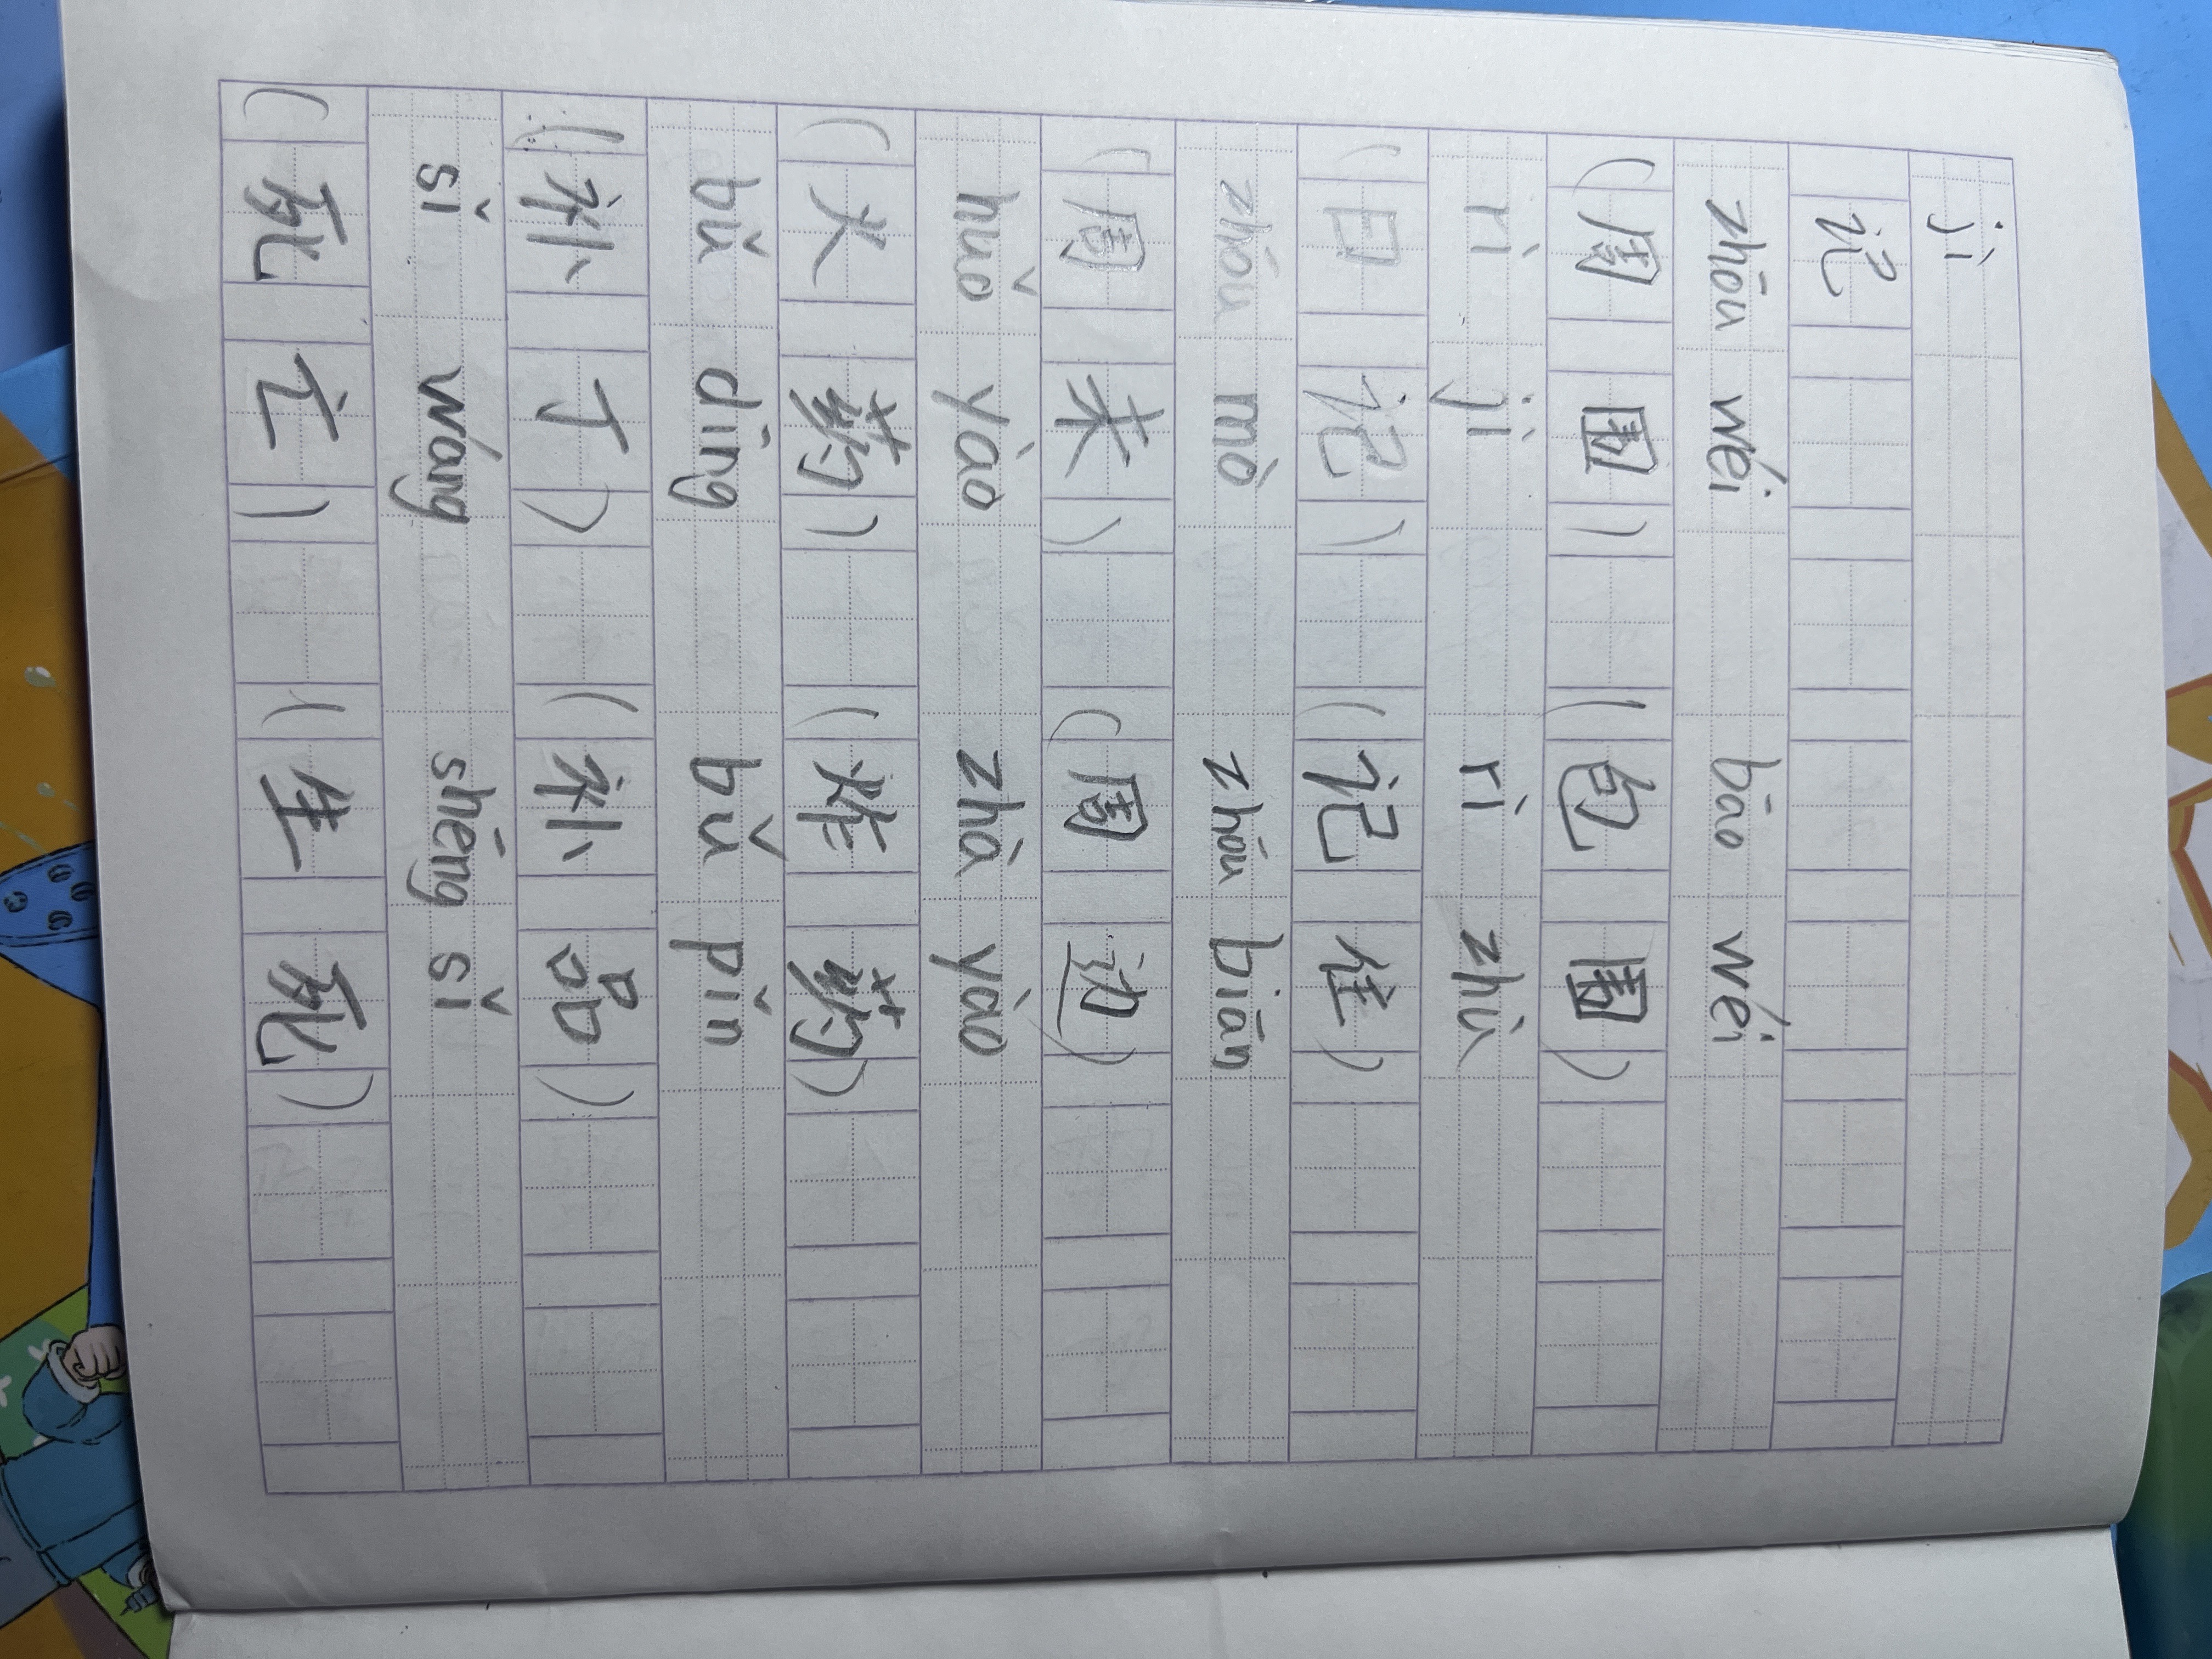 jì
记
zhōu wéi bāo wéi
(周围) (包围)
rì jì rì zhù
(日记) (记住)
zhōu mò zhōu biān
(周末) (周边)
huǒ yào zhà yào
(火药) (炸药)
bǔ dīng bǔ pǐn
(补丁) (补品)
sǐ wáng shēng sǐ
(死亡) (生死)